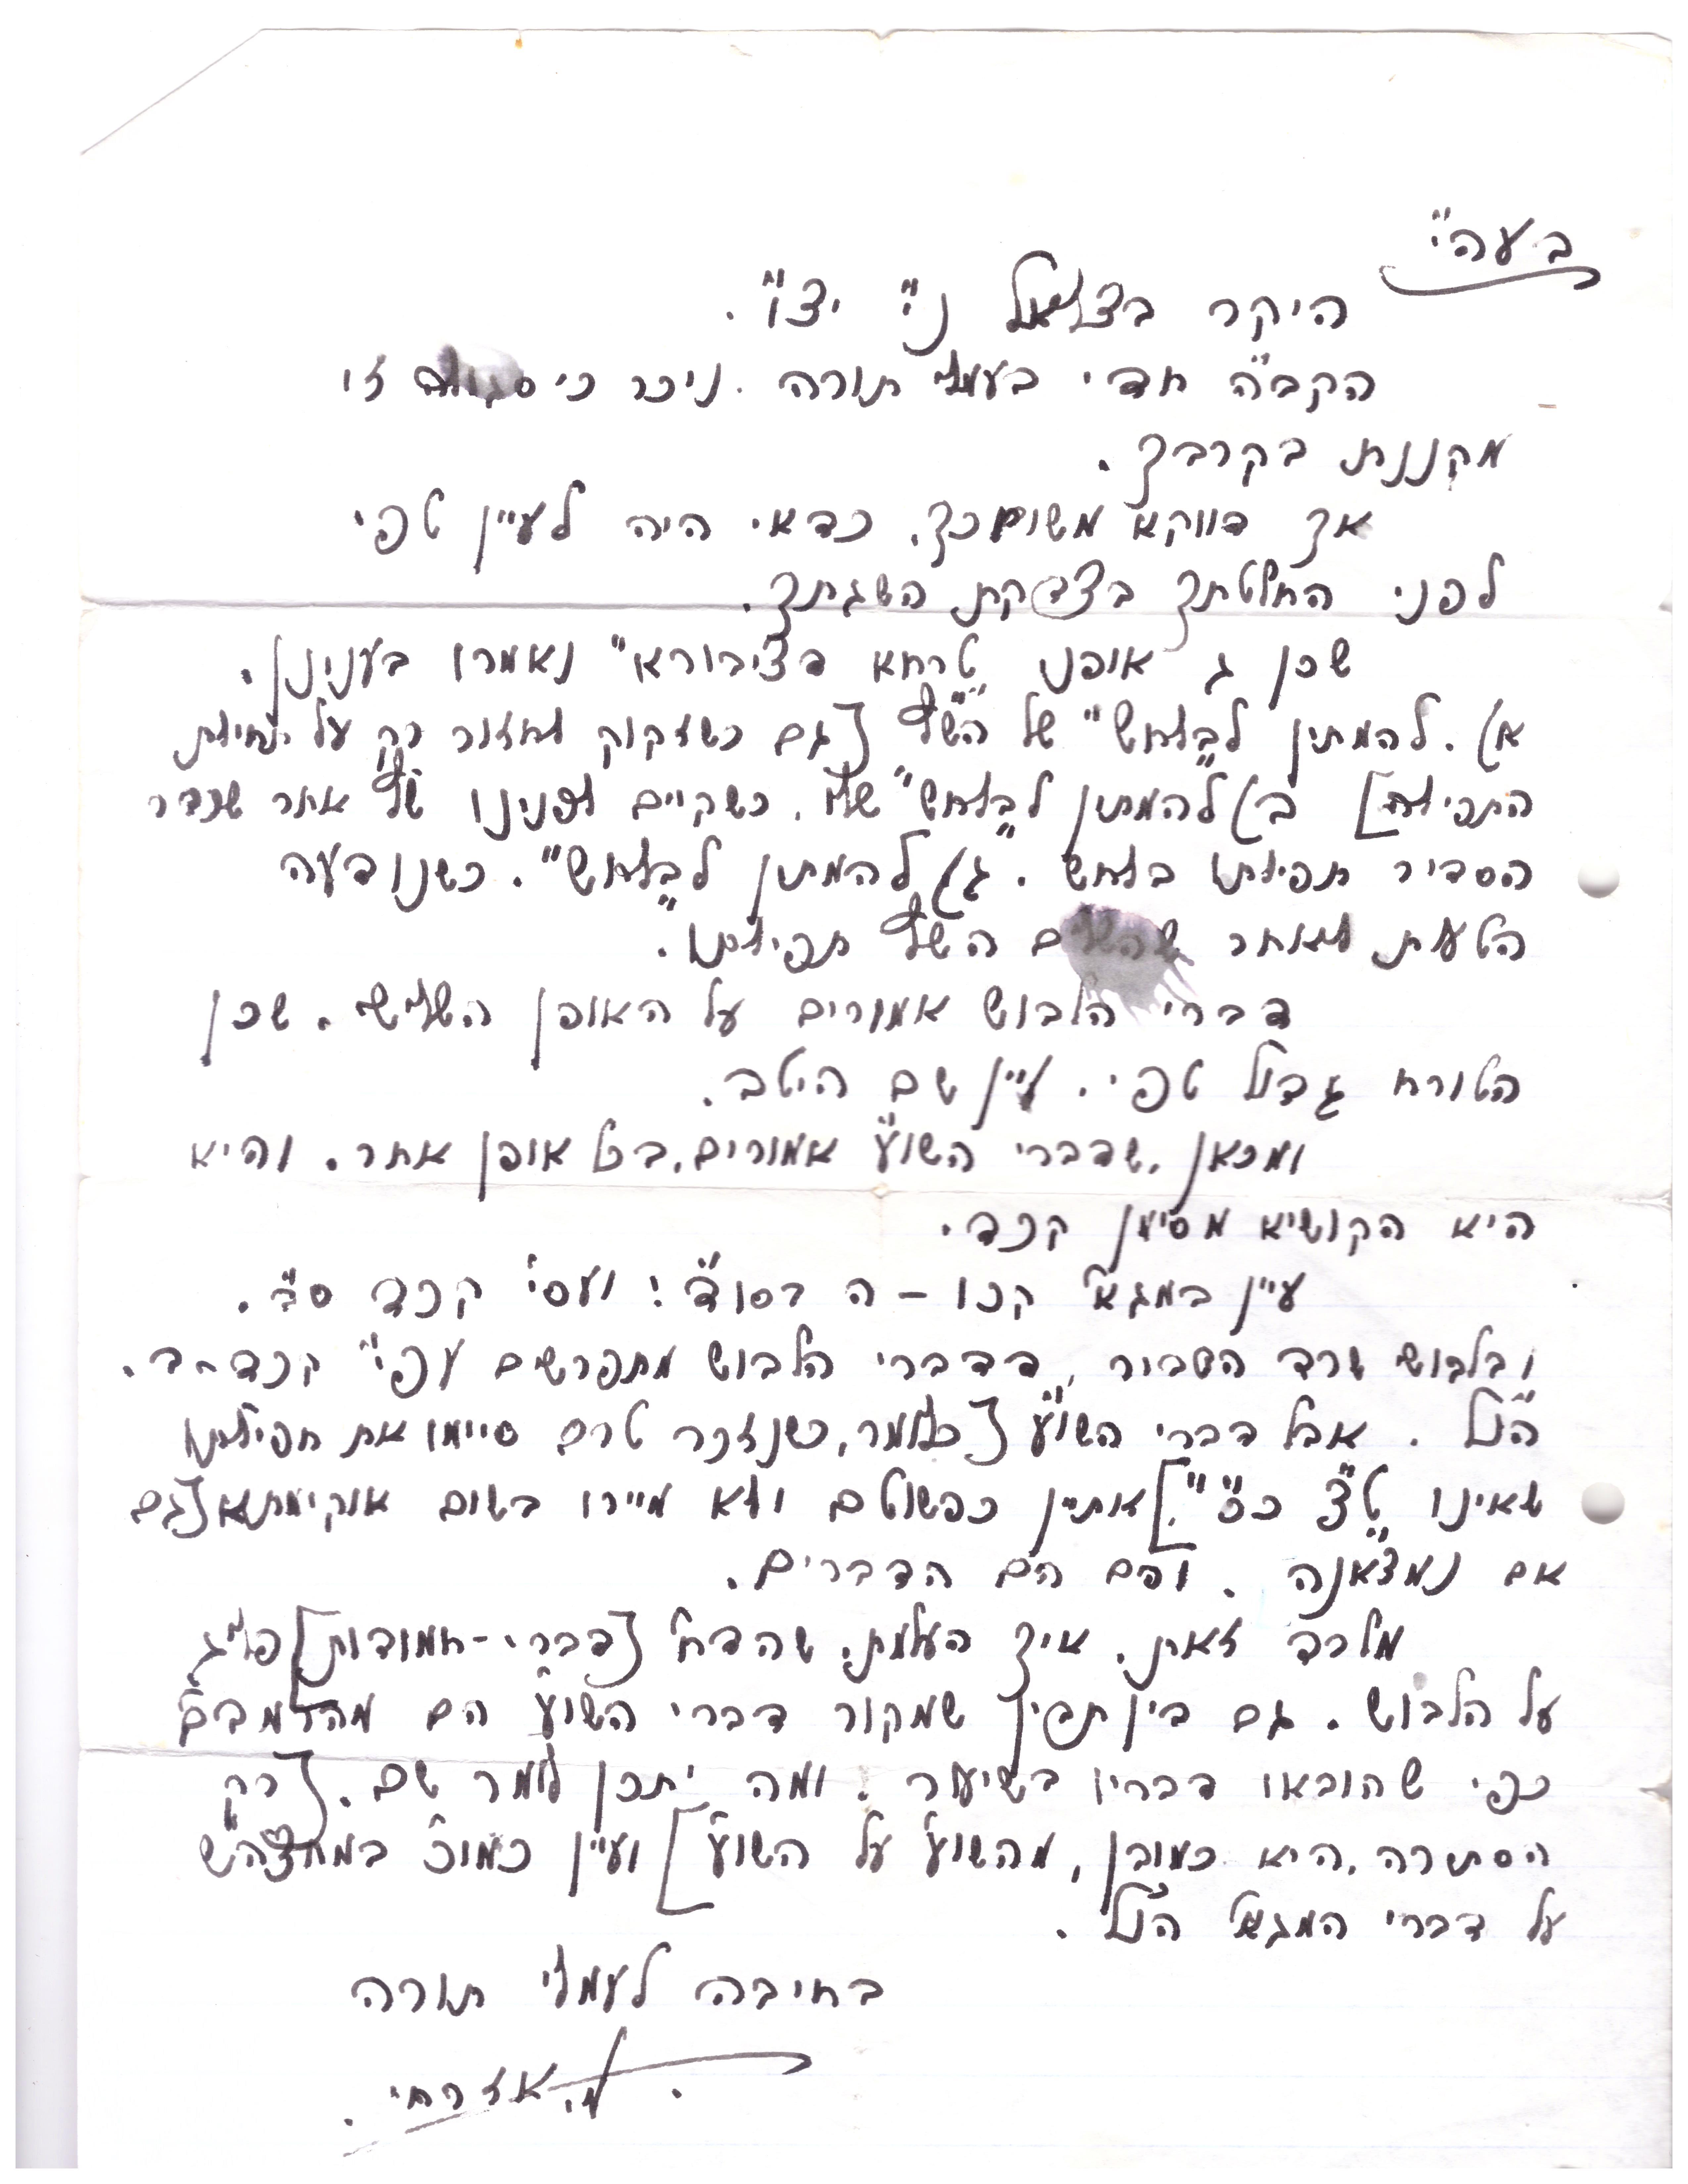 בעהי"
היקר בצלאל ני" יצו".
הקב"ה חדי בעמלי תורה. ניכר כי סגולה זו
מקננת בקרבך.
אך דווקא משום כך, כדאי היה לעיין טפי
לפני החלטתך בצדקת השגתך.
שכן ג אופני "טרחא דציבורא" נאמרו בענינן.
א). להמתין ל"בלחש" של הש"ץ [גם כשזקוק לחזור רק על תחילת
התפילה] ב) להמתין ל"בלחש" שלו, כשקיים לפנינו ש"ץ אחר שכבר
הסדיר תפילתו בלחש. ג) להמתין ל"בלחש". כשנודעה
הטעות לאחר שהשלים הש"ץ תפילתו.
דברי הלבוש אמורים על האופן השלישי. שכן
הטורח גדול טפי. עיין שם היטב.
ומכאן, שדברי השו"ע אמורים, בכל אופן אחר. והיא
היא הקושיא מסימן קכד.
עיין במג"א קכו - ה בסוד"ה! ועסי' קכד ס"ב.
ובלבוש שרד הסביר, דדברי הלבוש מתפרשים עפ"י קכד-ב.
הנ"ל. אבל דברי השו"ע [כלומר, כשנזכר טרם סיימו את תפילתו
שאינו ט"צ כ"כ"] אתיין כפשוטם ולא מיירו בשום אוקימתא [גם
אם נמצאנה. והם הם הדברים.
מלבד זאת, איך העלמת, שהדח" [דברי-חמודות] פליג
על הלבוש. גם בין תבין שמקור דברי השו"ע הם מהרמב"ם
כפי שהובאו דבריו בשיעור. ומה יתכן לומר שם. [רק
הסתירה, היא כמובן, מהשו"ע על השו"ע] ועיין כמו"כ במחצה"ש
על דברי המג"א הנ"ל.
בחיבה לעמלי תורה
מ. אזרחי.